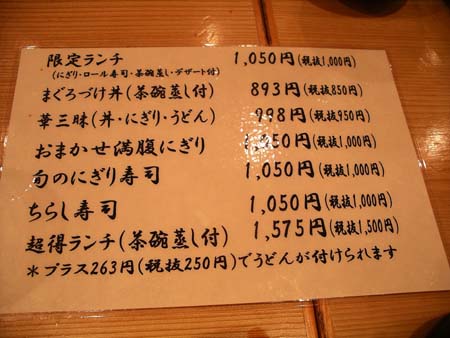 限定ランチ 1,050円(税抜1,000円)
(にぎり・ロール寿司・茶碗蒸し・デザート付)
まぐろづけ丼(茶碗蒸し付) 893円(税抜850円)
華三昧(丼・にぎり・うどん) 998円(税抜950円)
おまかせ満腹にぎり 1,050円(税抜1,000円)
旬のにぎり寿司 1,050円(税抜1,000円)
ちらし寿司 1,050円(税抜1,000円)
超得ランチ(茶碗蒸し付) 1,575円(税抜1,500円)
*プラス263円(税抜250円)でうどんが付けられます